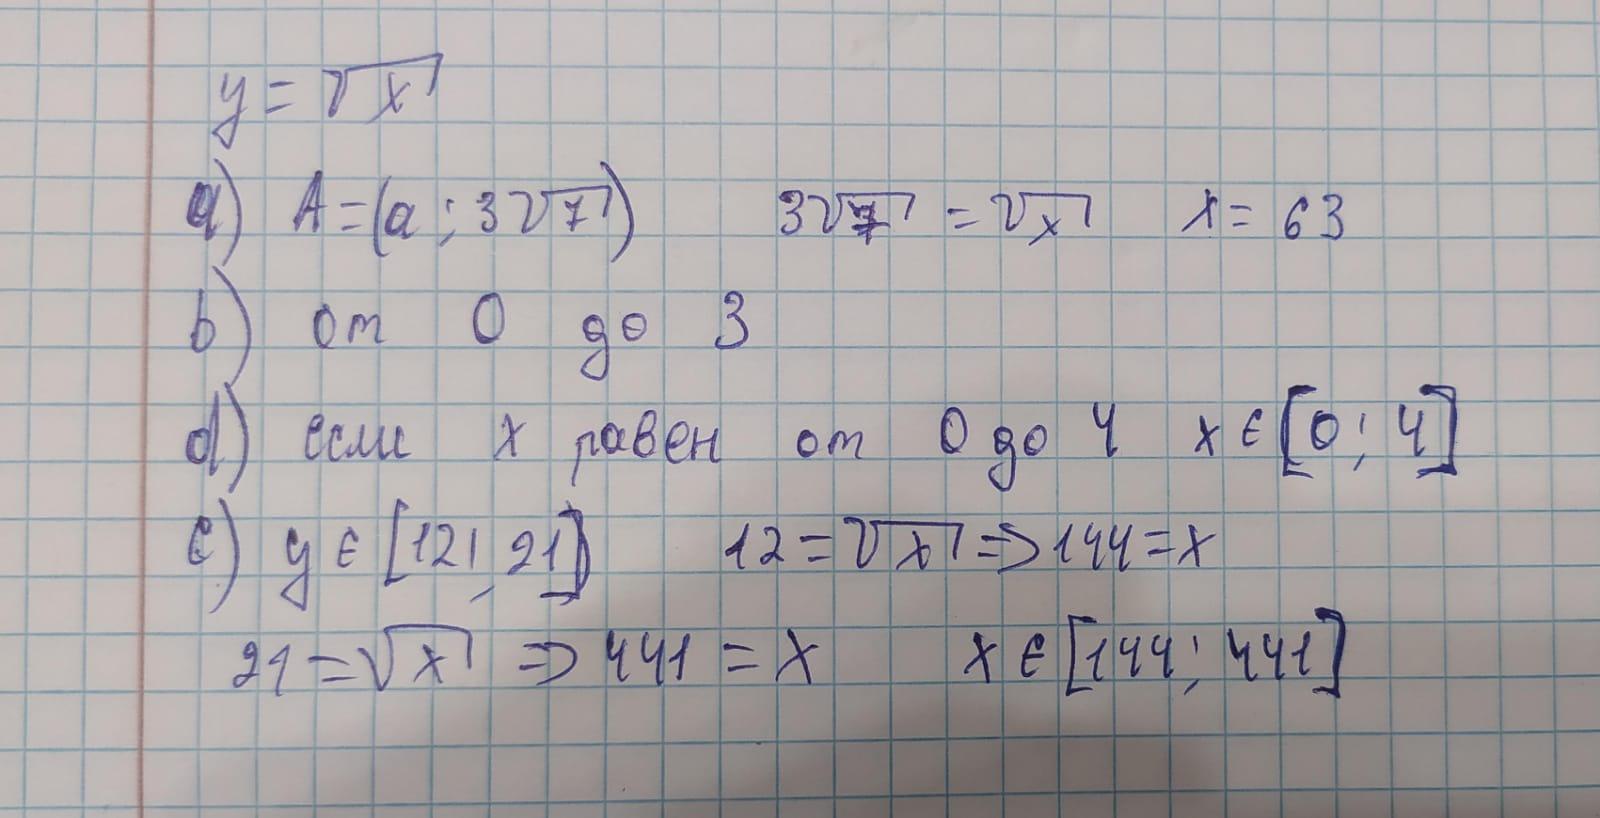 y = √x
a) A = (a; 3√7) 3√7 = √x x = 63
b) от 0 до 3
d) если x равен от 0 до 4 x ∈ [0; 4]
c) y ∈ [12; 21] 12 = √x => 144 = x
21 = √x => 441 = x x ∈ [144; 441]